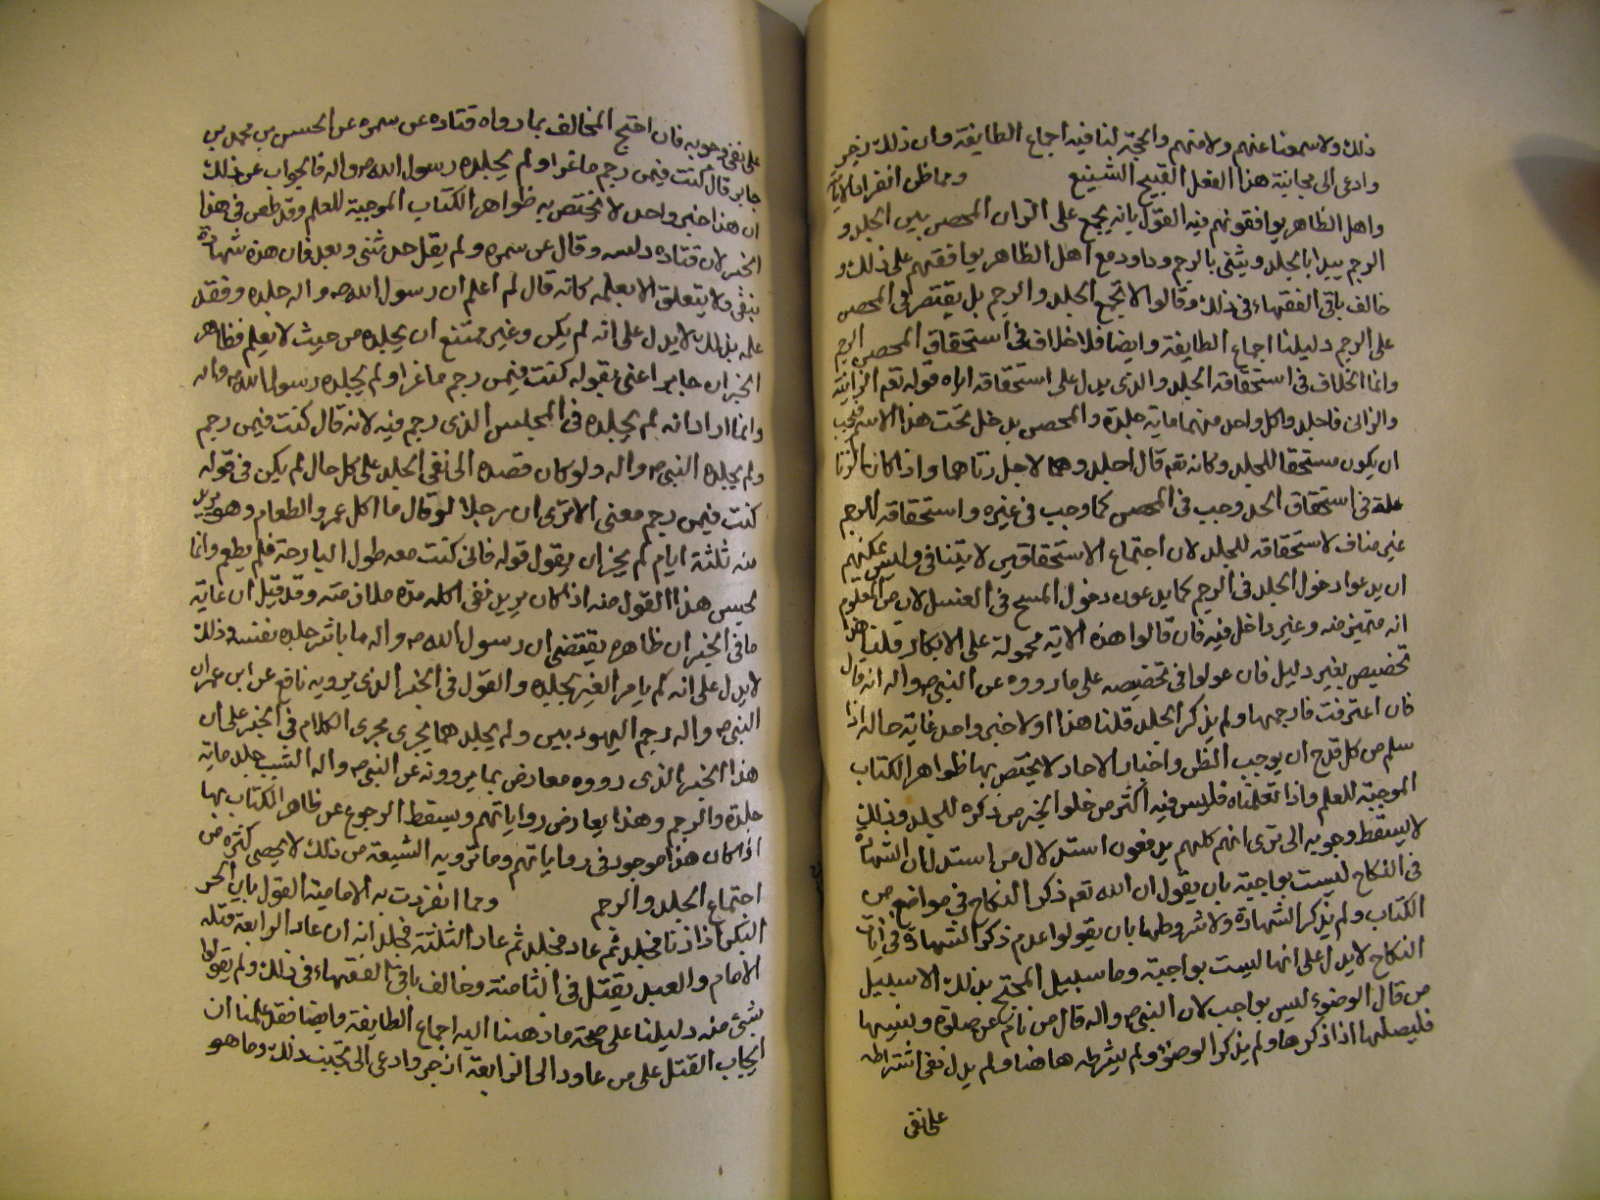 ذلك ولا سمعنا عنهم ولا منهم والحجة لنا فيه اجماع الطايفة وان ذلك زجر
وادعى الى مجانبة هذا الفعل القبيح الشنيع ومما ظن انفراد الامامية
واهل الظاهر يوافقونهم فيه القول بانه يجمع على الزان المحصن بين الجلد و
الرجم يبدا بالجلد ويثنى بالرجم وداود مع اهل الظاهر يوافقهم على ذلك و
خالف باقى الفقهاء فى ذلك وقالوا لا يجمع الجلد والرجم بل يقتصر فى المحصن
على الرجم دليلنا اجماع الطايفة وايضا فلا خلاف فى استحقاق المحصن الرجم
وانما الخلاف فى استحقاقه الجلد والذى يدل على استحقاقه اياه قوله تعم الزانية
والزانى فاجلدوا كل واحد منهما ماية جلدة والمحصن يدخل تحت هذا الاسم فيجب
ان يكون مستحقا للجلد وكانه تعم قال اجلدوهما لاجل زناهما واذا كان الزنا
علة فى استحقاق الحد وجب فى المحصن كما وجب فى غيره واستحقاقه للرجم
غير مناف لاستحقاقه للجلد لان اجتماع الاستحقاقين لا يتنافى وليس يمكنهم
ان يدعوا دخول الجلد فى الرجم كما يدعون دخول المسح فى الغسل لان من المعلوم
انه متميز منه وغير داخل فيه فان قالوا هذه الاية محمولة على الابكار قلنا هذا
تخصيص بغير دليل فان عولوا فى تخصيصه على ما رووه عن النبى ص واله انه قال
فان اعترفت فارجمها ولم يذكر الجلد قلنا هذا اولا خبر واحد غاية حاله اذا
سلم من كل قدح ان يوجب الظن واخبار الاحاد لا يختص بها ظواهر الكتاب
الموجبة للعلم واذا تعلمناه فليس فيه اكثر من خلوا الخبر من ذكره للجلد وذلك
لا يسقط وجوبه الى ترى انهم كلهم يدفعون استدلال من استدل بان الشهادة
فى النكاح ليست بواجبة بان يقول ان الله تعم ذكر النكاح فى مواضع من
الكتاب ولم يذكر الشهادة ولا شروطها بان يقولوا عدم ذكر الشهادة فى ايات
النكاح لا يدل على انها ليست بواجبة وما سبيل المحتج بذلك الا سبيل
من قال الوضوء ليس بواجب لان النبى ص واله قال من نام عن صلوة او نسيها
فليصلها اذا ذكرها ولم يذكر الوضوء ولم يشرطه هاهنا ولم يدل نفى اشتراطه
على نفى
على نفى وجوبه فان احتج المخالف بما رواه قتاده عن سمره عن الحسن بن محمد بن
جابر قال كنت فيمن رجم ماغرا ولم يجلده رسول الله ص واله فالجواب عن ذلك
ان هذا خبر واحد لا يختص به ظواهر الكتاب الموجبة للعلم وقد طعن فى هذا
الخبر لان قتاده دلسه وقال عن سمره ولم يقل حدثنى وبعد فان هذه شهادة
بنفى ولا يتعلق الا بعلمه كانه قال لم اعلم ان رسول الله ص واله جلده وفقد
علمه بذلك لا يدل على انه لم يكن وغير ممتنع ان يجلده من حيث لا يعلم فظاهر
الخبر ان جابرا عنى بقوله كنت فيمن رجم ماغرا ولم يجلده رسول الله ص واله
وانما اراد انه لم يجلده فى المجلس الذى رجم فيه لانه قال كنت فيمن رجم
ولم يجلده النبى ص واله ولو كان قصده الى نفى الجلد على كل حال لم يكن فى قوله
كنت فيمن رجم معنى الا ترى ان رجلا لو قال ما اكل عمرو الطعام وهو يريد
منه ثلثة ايام لم يجز ان يقول قوله فانى كنت معه طول البارحة فلم يطعم وانما
يحسن هذا القول منه اذا كان يريد نفى اكله مدة ملازمته وقد قيل ان غاية
ما فى الخبر ان ظاهره يقتضى ان رسول الله ص واله ما باشر جلده بنفسه وذلك
لا يدل على انه لم يامر الغير بجلده والقول فى الخبر الذى يرويه نافع عن ابن عمر ان
النبى ص واله رجم اليهوديين ولم يجلدهما يجرى مجرى الكلام فى الخبر على ان
هذا الخبر الذى رووه معارض بما يروونه عن النبى ص واله الثيب جلد ماية
جلدة والرجم وهذا يعارض رواياتهم ويسقط الرجوع عن ظاهر الكتاب بها
اذا كان هذا موجود فى رواياتهم وما ترويه الشيعة من ذلك لا يحصى كثرة من
اجتماع الجلد والرجم ومما انفردت به الامامية القول بان الحر
البكر اذا زنا فجلد ثم عاد فجلد ثم عاد الثلثة فجلد انه ان عاد الرابعة قتله
الامام والعبد يقتل فى الثامنة وخالف باقى الفقهاء فى ذلك ولم يقولوا
بشئ منه دليلنا على صحة ما ذهبنا اليه اجماع الطايفة وايضا فقد علمنا ان
ايجاب القتل على من عاود الى الرابعة ازجر وادعى الى تجنب ذلك وما هو